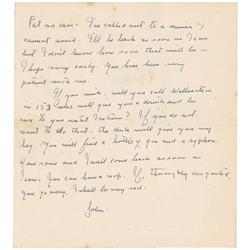 Pat my dear - I'm called out to a dinner I
cannot avoid. I'll be back as soon as I can
but I don't know how soon that will be -
I hope very early. You have been very
patient with me.
If you wish, will you call
in 153 will give you a drink and be
nice to you until I return? If you do not
want to do that, the desk will give you my
key. You will find a bottle of gin and a syphon
. You come and I will come back as soon as
I can. You can have a nap. If, thoroughly disgusted,
you go away, I shall be very sad.
John -